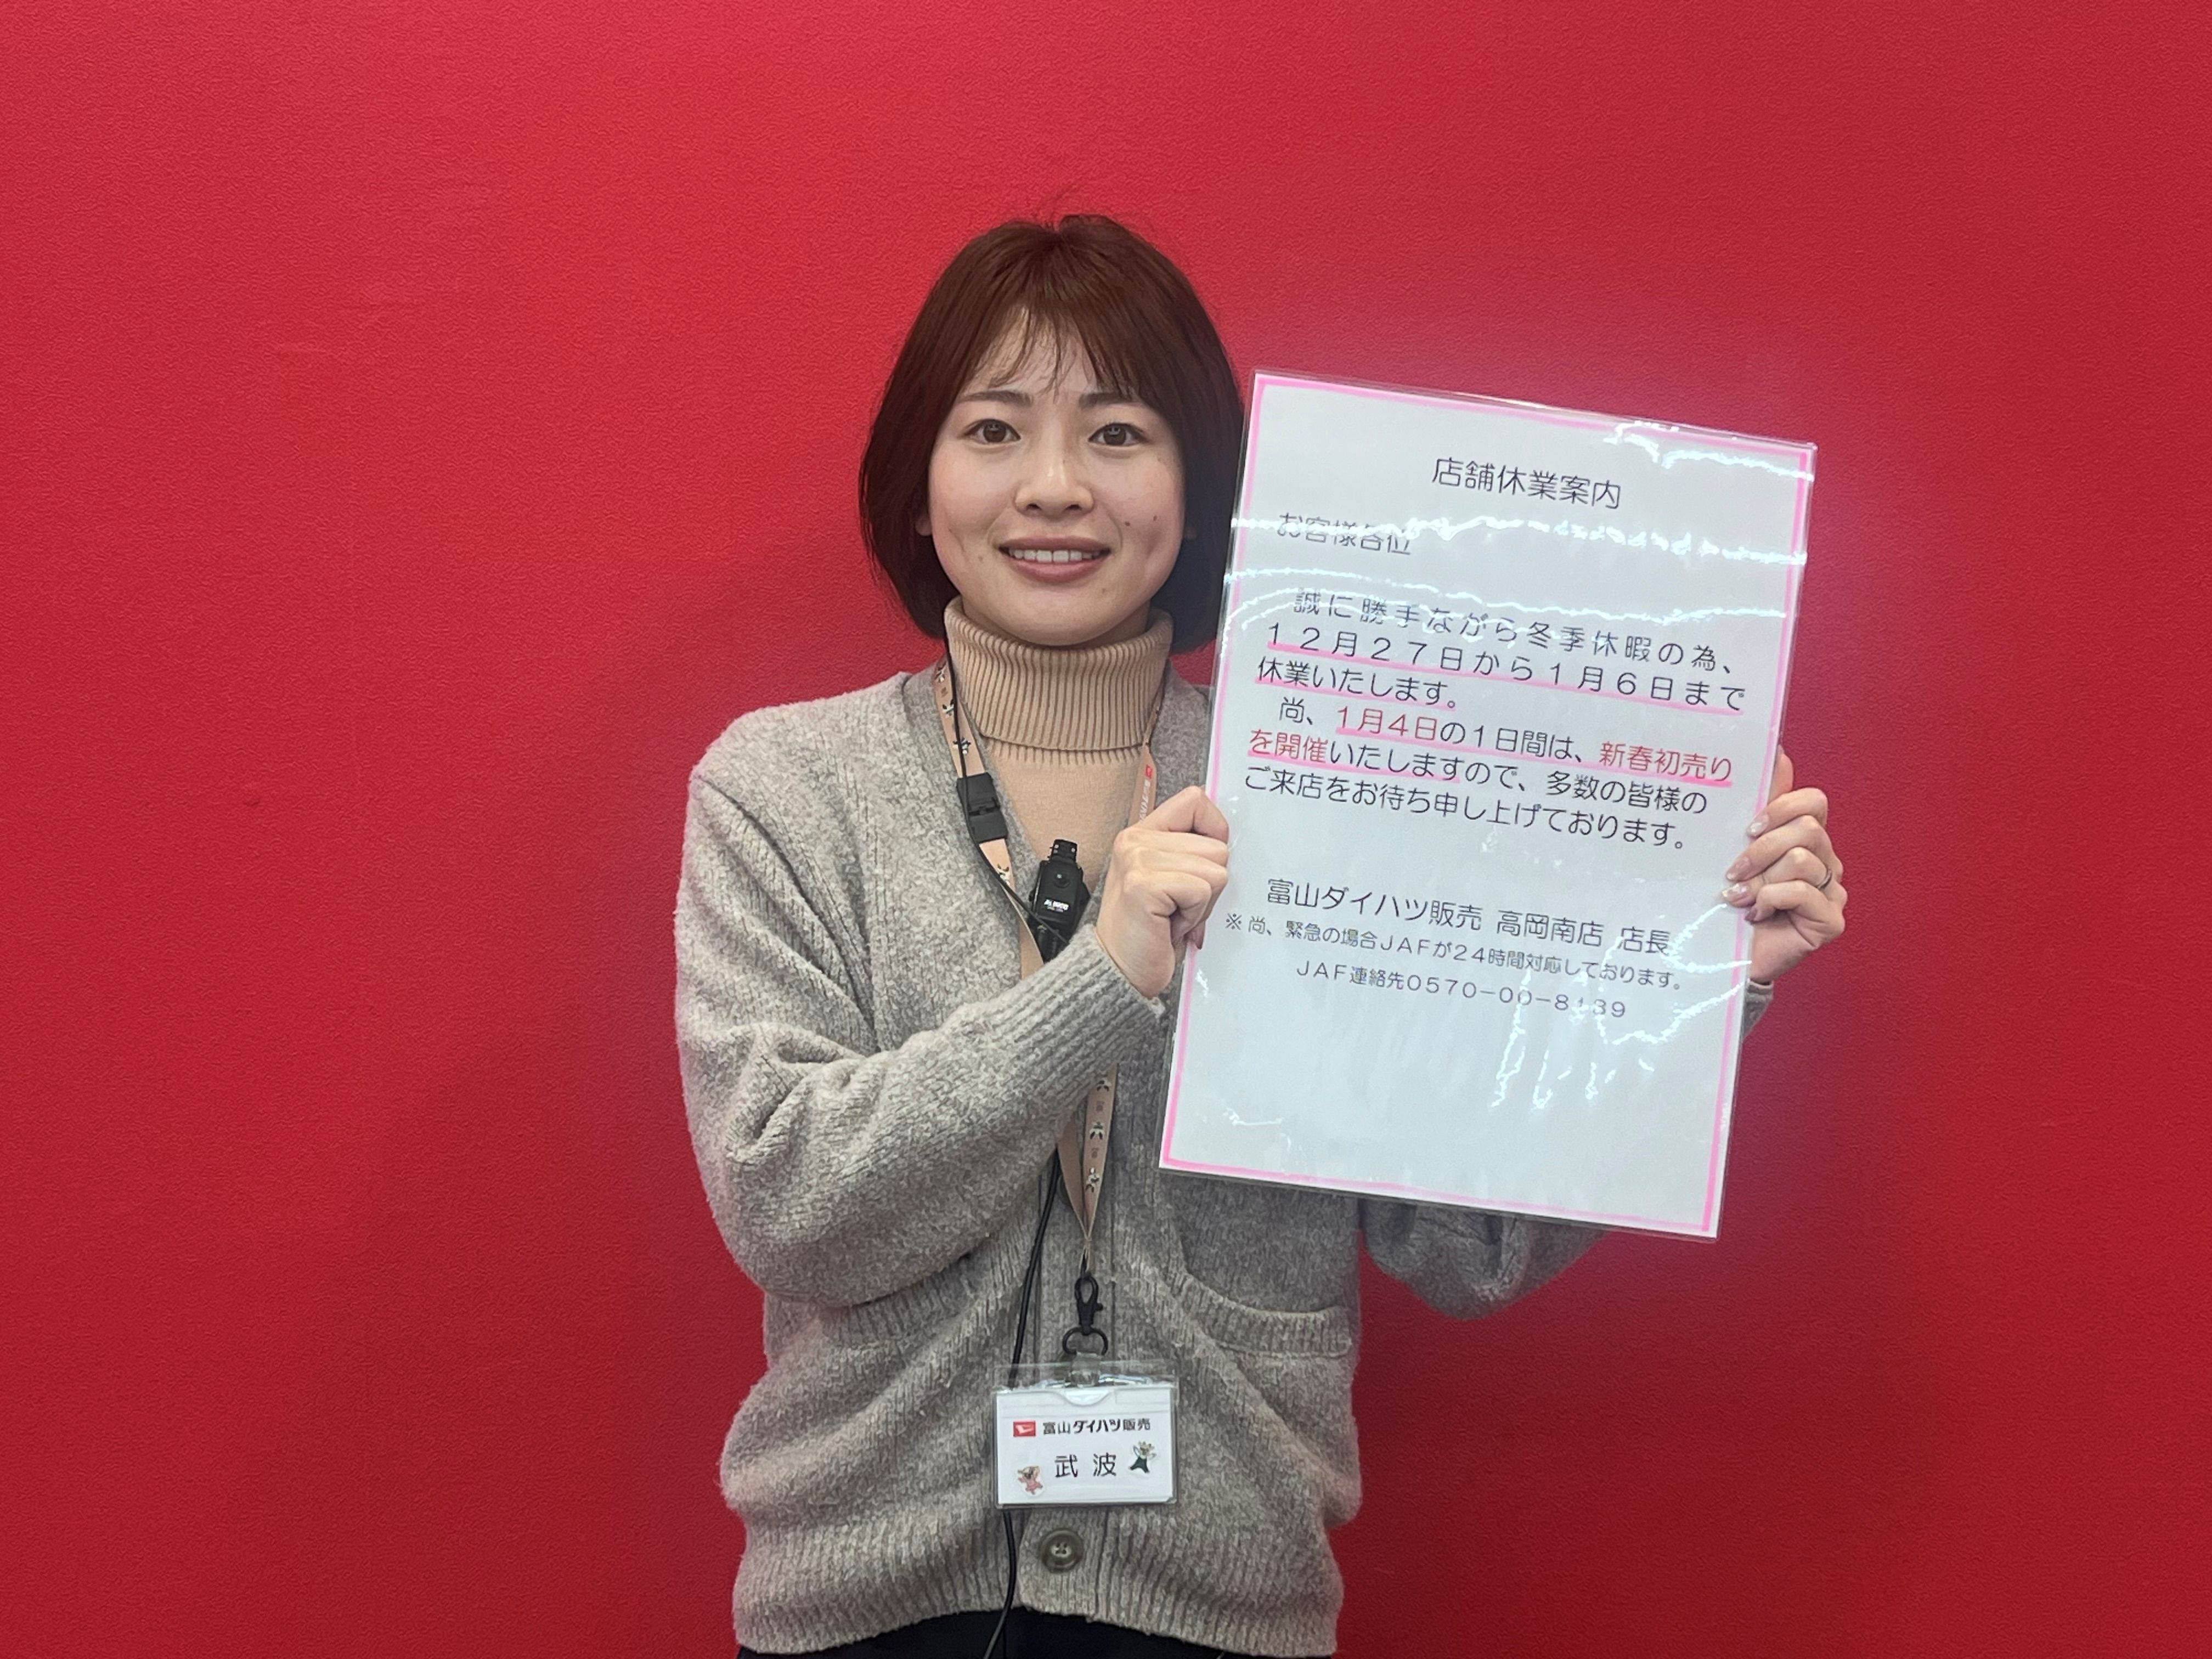 店舗休業案内
お客様各位
誠に勝手ながら冬季休暇の為、
１２月２７日から１月６日まで
休業いたします。
尚、１月４日の１日間は、新春初売り
を開催いたしますので、多数の皆様の
ご来店をお待ち申し上げております。
富山ダイハツ販売 高岡南店 店長
※尚、緊急の場合ＪＡＦが２４時間対応しております。
ＪＡＦ連絡先０５７０－００－８１３９
富山ダイハツ販売
武波